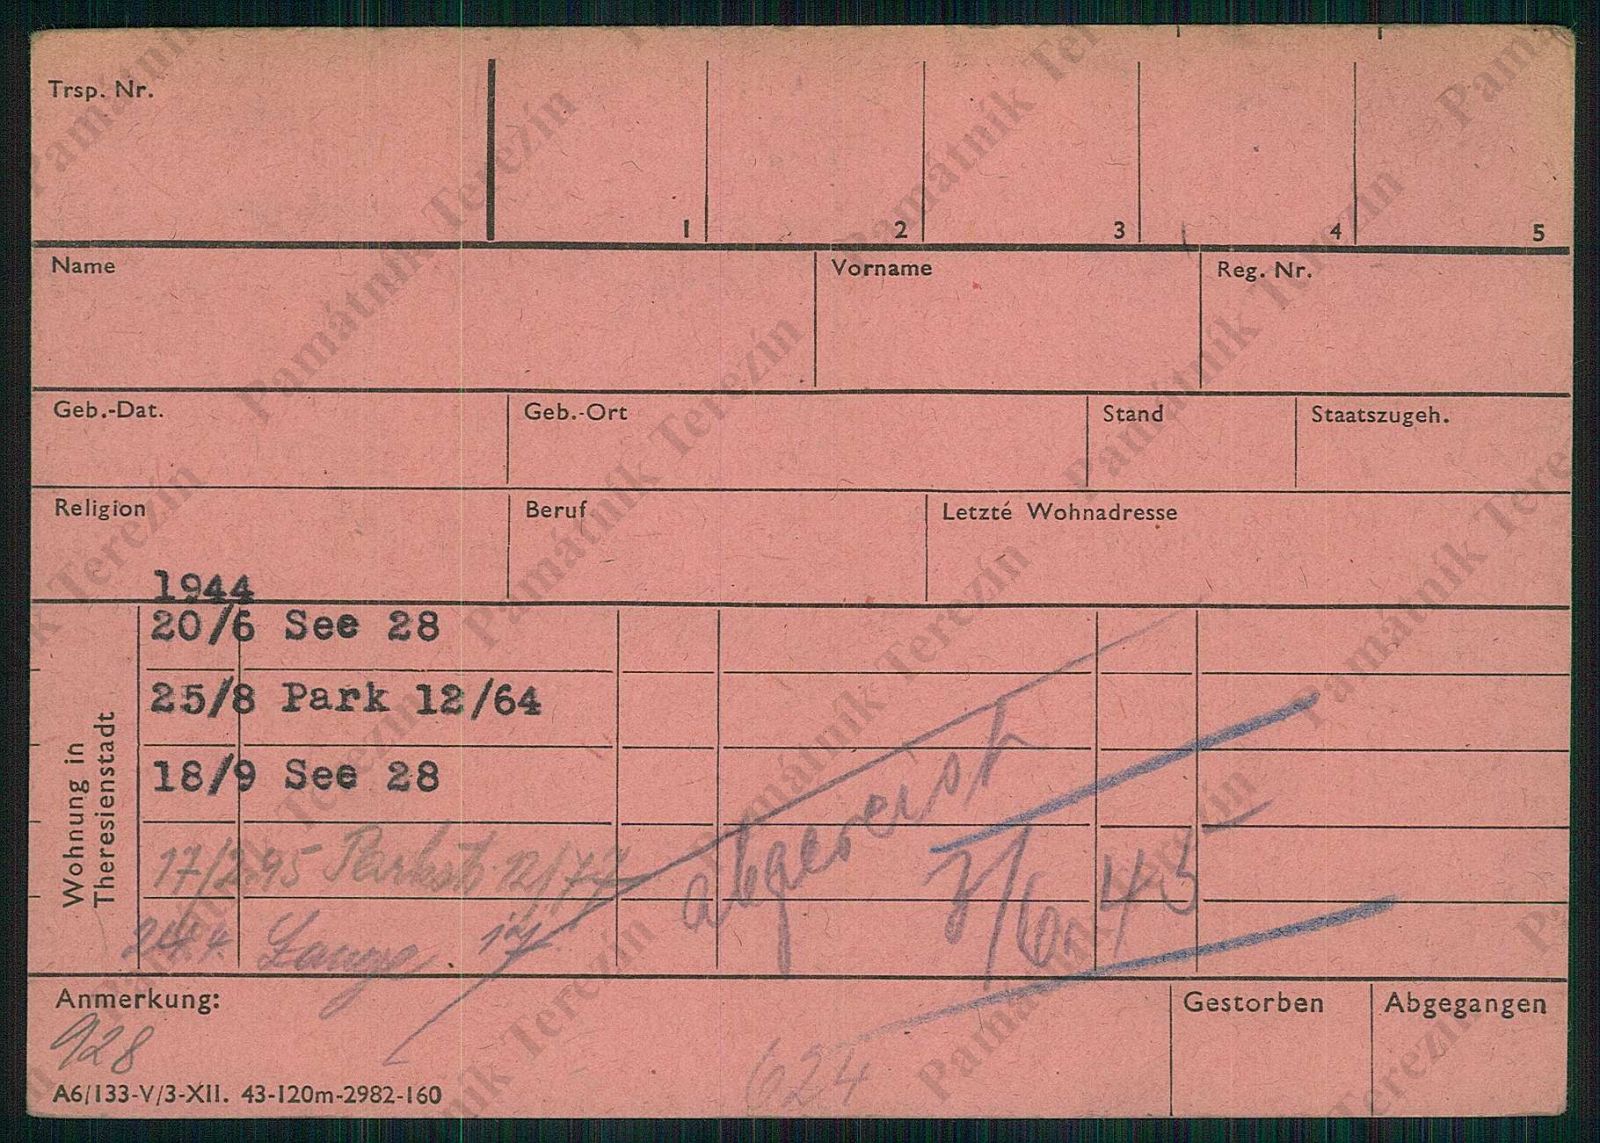 Trsp. Nr.
1 2 3 4 5
Name Vorname Reg. Nr.
Geb.-Dat. Geb.-Ort Stand Staatszugeh.
Religion Beruf Letzté Wohnadresse
1944
Wohnung in
Theresienstadt
20/6 See 28
25/8 Park 12/64
18/9 See 28
17/2.45 Parkstr. 12/77
24.4. Lange 12
abgereist
7/6.45
Anmerkung: Gestorben Abgegangen
928
624
A6/133-V/3-XII. 43-120m-2982-160
Památník Terezín